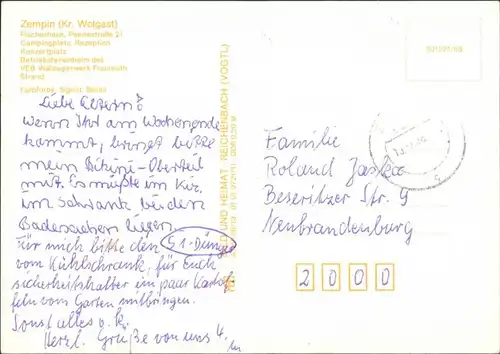 Zempin (Kr. Wolgast)
Fischerhaus, Peenestraße 21
Campingplatz, Rezeption
Konzertplatz
Betriebsferienheim des
VEB Walzengerwerk
Strand
Liebe Eltern!
Wenn Ihr am Wochenende
kommt, bringt bitte
mein Bikini-Oberteil
mit. Es müßte im Kiz.
im Schrank bei den
Badesachen liegen.
Für mich bitte den S1-Dünger
vom Kühlschrank, für Euch
sicherheitshalber ein paar Kartof-
feln vom Garten mitbringen.
Sonst alles o.k.
Herzl. Grüße von uns 4.
UND HEIMAT REICHENBACH (VOGTL)
Familie
Roland
Beseritzer Str. 9
Neubrandenburg
2000